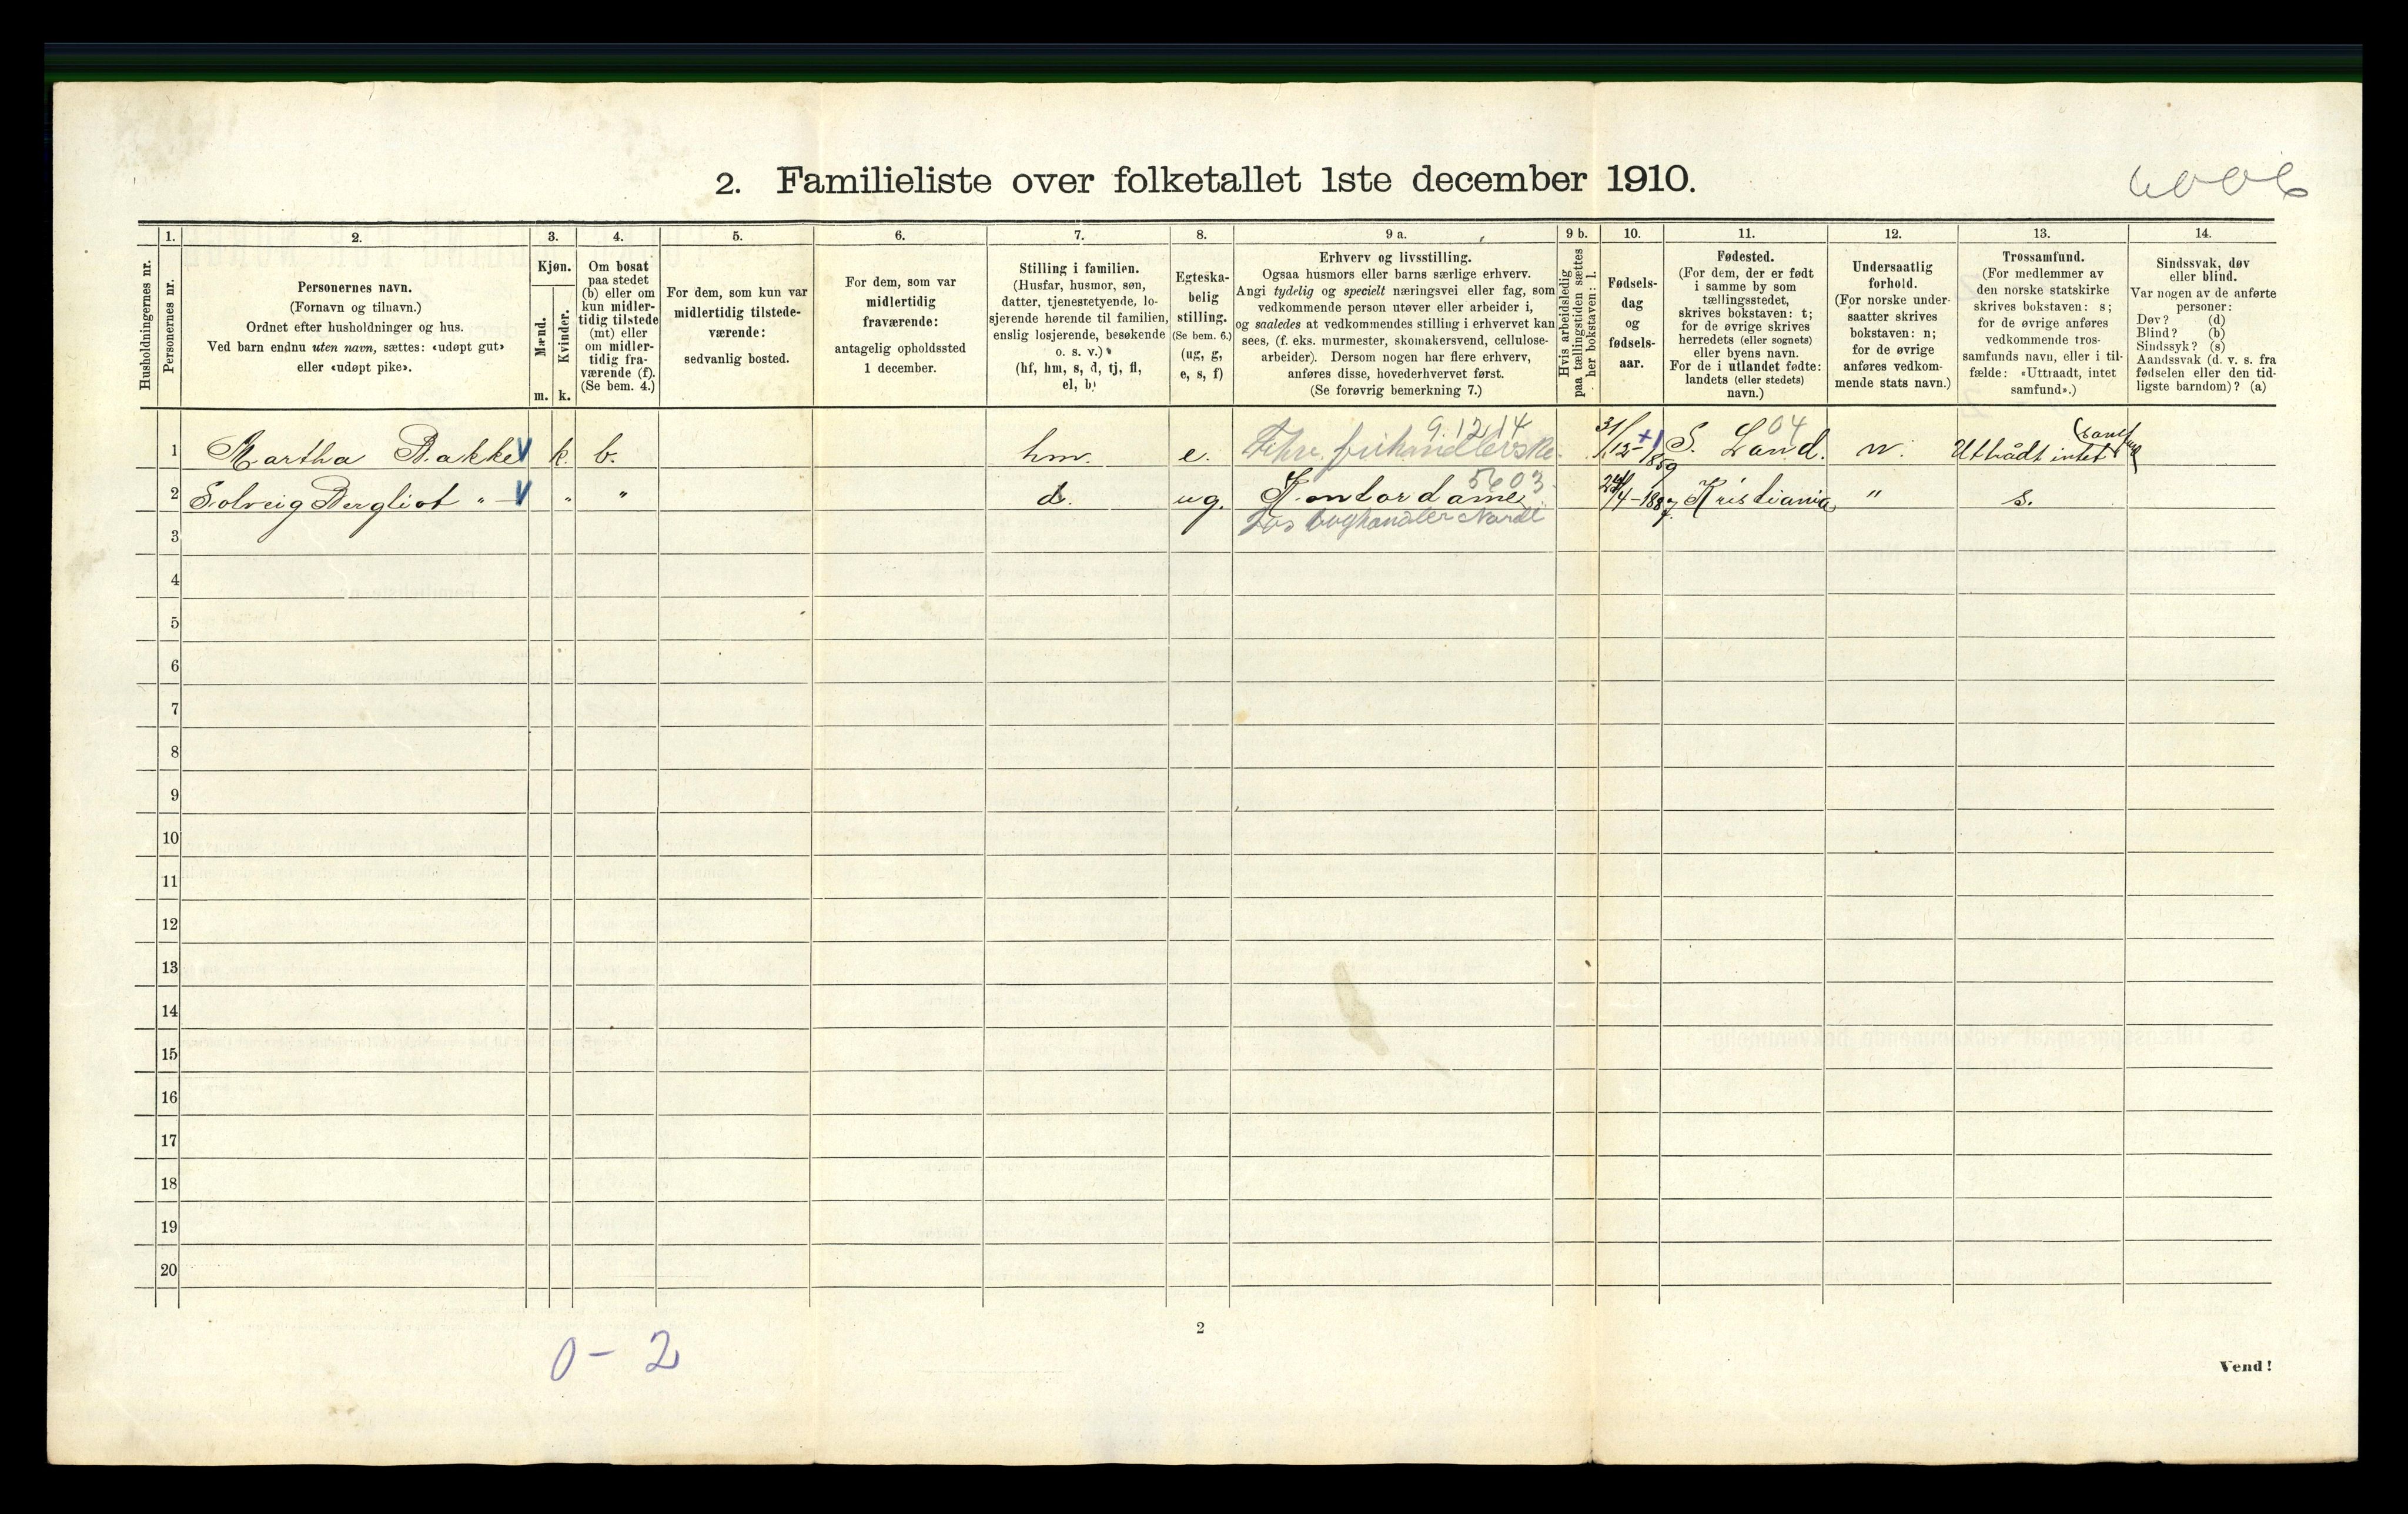 2. Familieliste over folketallet 1ste december 1910.
6006
1. 2. 3. 4. 5. 6. 7. 8. 9 a. 9 b. 10. 11. 12. 13. 14.
Husholdningernes nr.
Personernes nr.
Personernes navn.
(Fornavn og tilnavn.)
Ordnet efter husholdninger og hus.
Ved barn endnu uten navn, sættes: «udøpt gut»
eller «udøpt pike».
Kjøn.
Mænd.
Kvinder.
m. k.
Om bosat
paa stedet
(b) eller om
kun midler-
tidig tilstede
(mt) eller
om midler-
tidig fra-
værende (f).
(Se bem. 4.)
For dem, som kun var
midlertidig tilstede-
værende:
sedvanlig bosted.
For dem, som var
midlertidig
fraværende:
antagelig opholdssted
1 december.
Stilling i familien.
(Husfar, husmor, søn,
datter, tjenestetyende, lo-
sjerende hørende til familien,
enslig losjerende, besøkende
o. s. v.)
(hf, hm, s, d, tj, fl,
el, b)
Egteska-
belig
stilling.
(Se bem. 6.)
(ug, g,
e, s, f)
Erhverv og livsstilling.
Ogsaa husmors eller barns særlige erhverv.
Angi tydelig og specielt næringsvei eller fag, som
vedkommende person utøver eller arbeider i,
og saaledes at vedkommendes stilling i erhvervet kan
sees, (f. eks. murmester, skomakersvend, cellulose-
arbeider). Dersom nogen har flere erhverv,
anføres disse, hovederhvervet først.
(Se forøvrig bemerkning 7.)
Hvis arbeidsledig
paa tællingstiden sættes
her bokstaven: l.
Fødsels-
dag
og
fødsels-
aar.
Fødested.
(For dem, der er født
i samme by som
tællingsstedet,
skrives bokstaven: t;
for de øvrige skrives
herredets (eller sognets)
eller byens navn.
For de i utlandet fødte:
landets (eller stedets)
navn.)
Undersaatlig
forhold.
(For norske under-
saatter skrives
bokstaven: n;
for de øvrige
anføres vedkom-
mende stats navn.)
Trossamfund.
(For medlemmer av
den norske statskirke
skrives bokstaven: s;
for de øvrige anføres
vedkommende tros-
samfunds navn, eller i til-
fælde: «Uttraadt, intet
samfund».)
Sindssvak, døv
eller blind.
Var nogen av de anførte
personer:
Døv? (d)
Blind? (b)
Sindssyk? (s)
Aandssvak (d. v. s. fra
fødselen eller den tid-
ligste barndom)? (a)
9.12.14 04
1 Martha Bakke k. b. hm. e. 31/12-1859 S. Land. n. intet
5603
2 Solveig Bergliot " — " " d. ug. Kontordame 24/4-1887 Kristiania " s.
3
4
5
6
7
8
9
10
11
12
13
14
15
16
17
18
19
20
2
0 - 2
Vend!